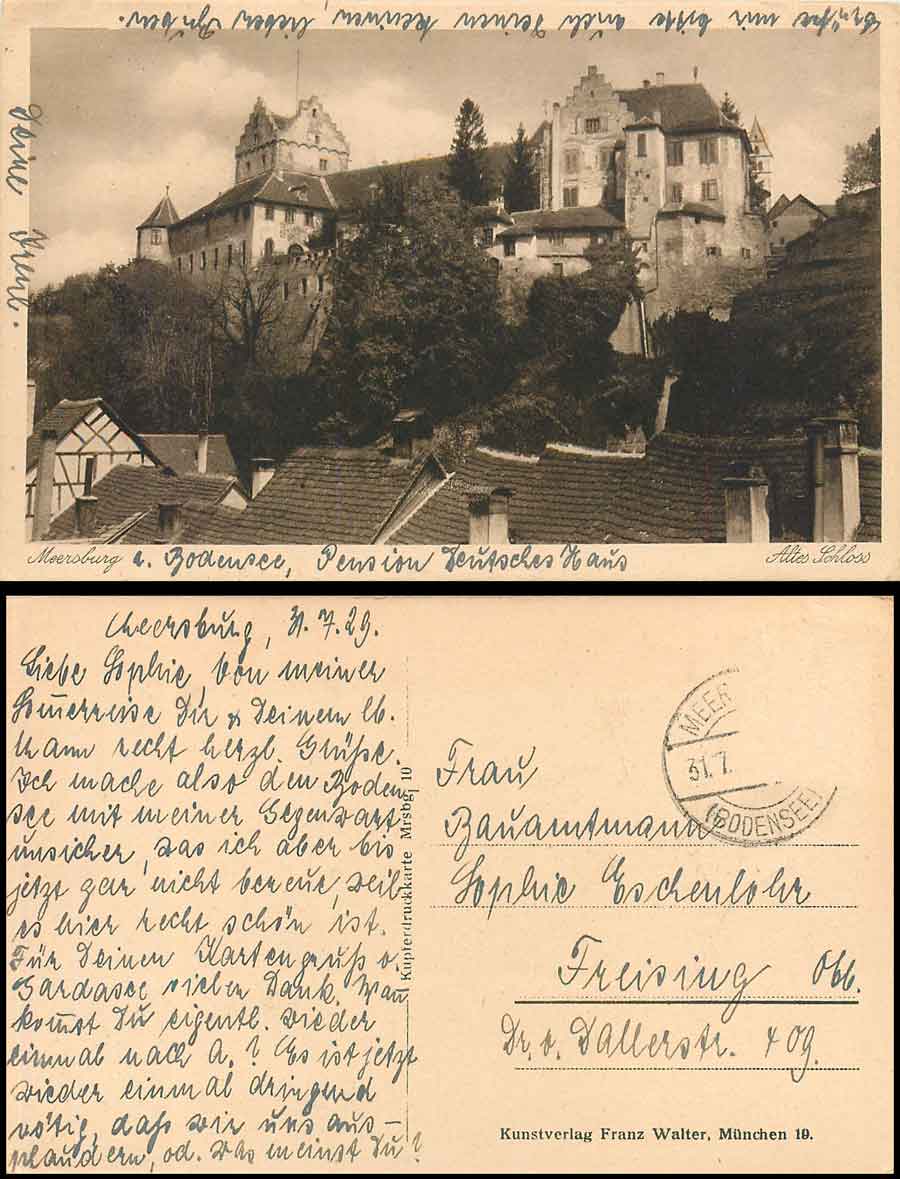 Grüße mir bitte auch Deinen kleinen, lieben Buben.
Deine Irene.
Meersburg a. Bodensee, Pension Deutsches Haus
Altes Schloss
Meersburg, 31.7.29.
Liebe Sophie, Von meiner
Som̅erreise Dir & Deinem lb.
Mann recht herzl. Grüße.
Ich mache also den Boden-
see mit meiner Gegenwart
unsicher, was ich aber bis
jetzt gar nicht bereue, weil
es hier recht schön ist.
Für Deinen Kartengruß v.
Gardasee vielen Dank. Wan̅
kom̅st Du eigentl. wieder
einmal nach A.? Es ist jetzt
wieder einmal dringend
nötig, dass wir uns aus-
plaudern, od. was meinst Du?
Kupferdruckkarte Mrsbg. 10
MEER
31. 7.
(BODENSEE)
Frau
Bauamtmann
Sophie Eschenlohr
Freising Obb.
Dr. v. Dallerstr. 409.
Kunstverlag Franz Walter, München 19.